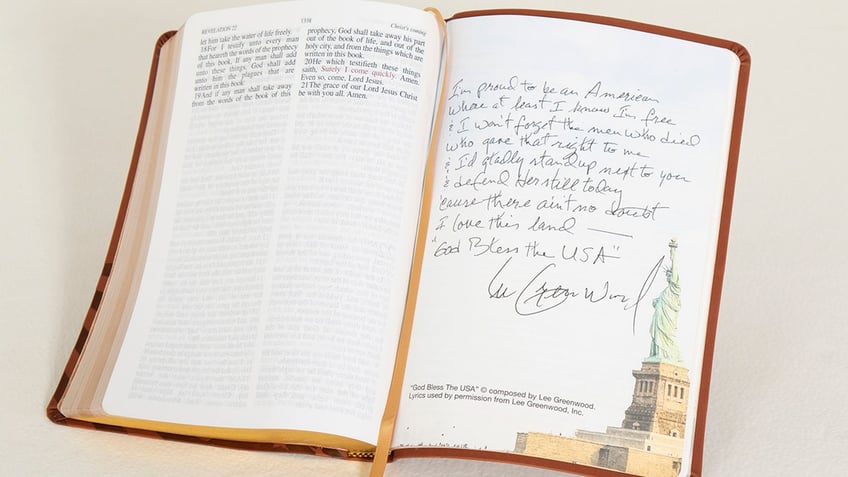 REVELATION 22
1338
Christ's coming
let him take the water of life freely.
18For I testify unto every man
that heareth the words of the prophecy
of this book, If any man shall add
unto these things, God shall add
unto him the plagues that are
written in this book:
19And if any man shall take away
from the words of the book of this
prophecy, God shall take away his part
out of the book of life, and out of the
holy city, and from the things which are
written in this book.
20He which testifieth these things
saith, Surely I come quickly. Amen.
Even so, come, Lord Jesus.
21The grace of our Lord Jesus Christ
be with you all. Amen.
I'm proud to be an American
where at least I know I'm free
& I won't forget the men who died
who gave that right to me
& I'd gladly stand up next to you
& defend Her still today
'cause there ain't no doubt
I love this land —
"God Bless the USA"
Lee Greenwood
"God Bless The USA" © composed by Lee Greenwood.
Lyrics used by permission from Lee Greenwood, Inc.